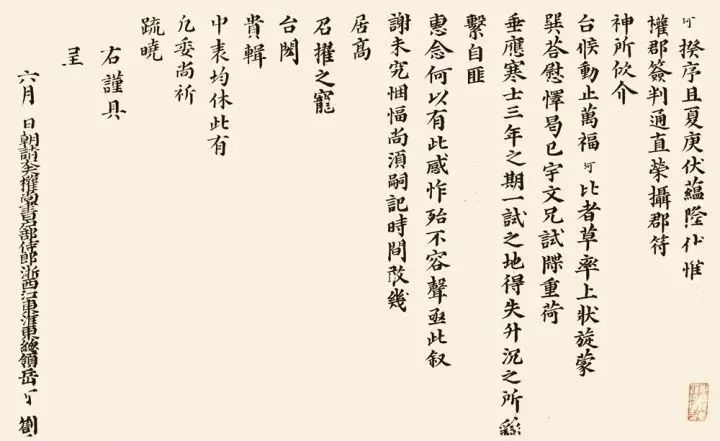 可 揆序且夏庚伏蘊隆仆惟
權郡簽判通直榮攝郡符
神所佽介
台候動止萬福可比者草率上狀旋蒙
巽答慰懌曷已宇文兄試牒重荷
垂應寒士三年之期一試之地得失升沉之所繇
繫自匪
惠念何以有此感怍殆不容聲亟此叙
謝未究悃愊尚須嗣記時間改幾
居高
召擢之寵
台閎
貴輯
中表均休此有
凢委尚祈
疏曉
右謹具
呈
六月 日朝請大夫權尚書戶部侍郎浙西江東淮東總領岳可劄